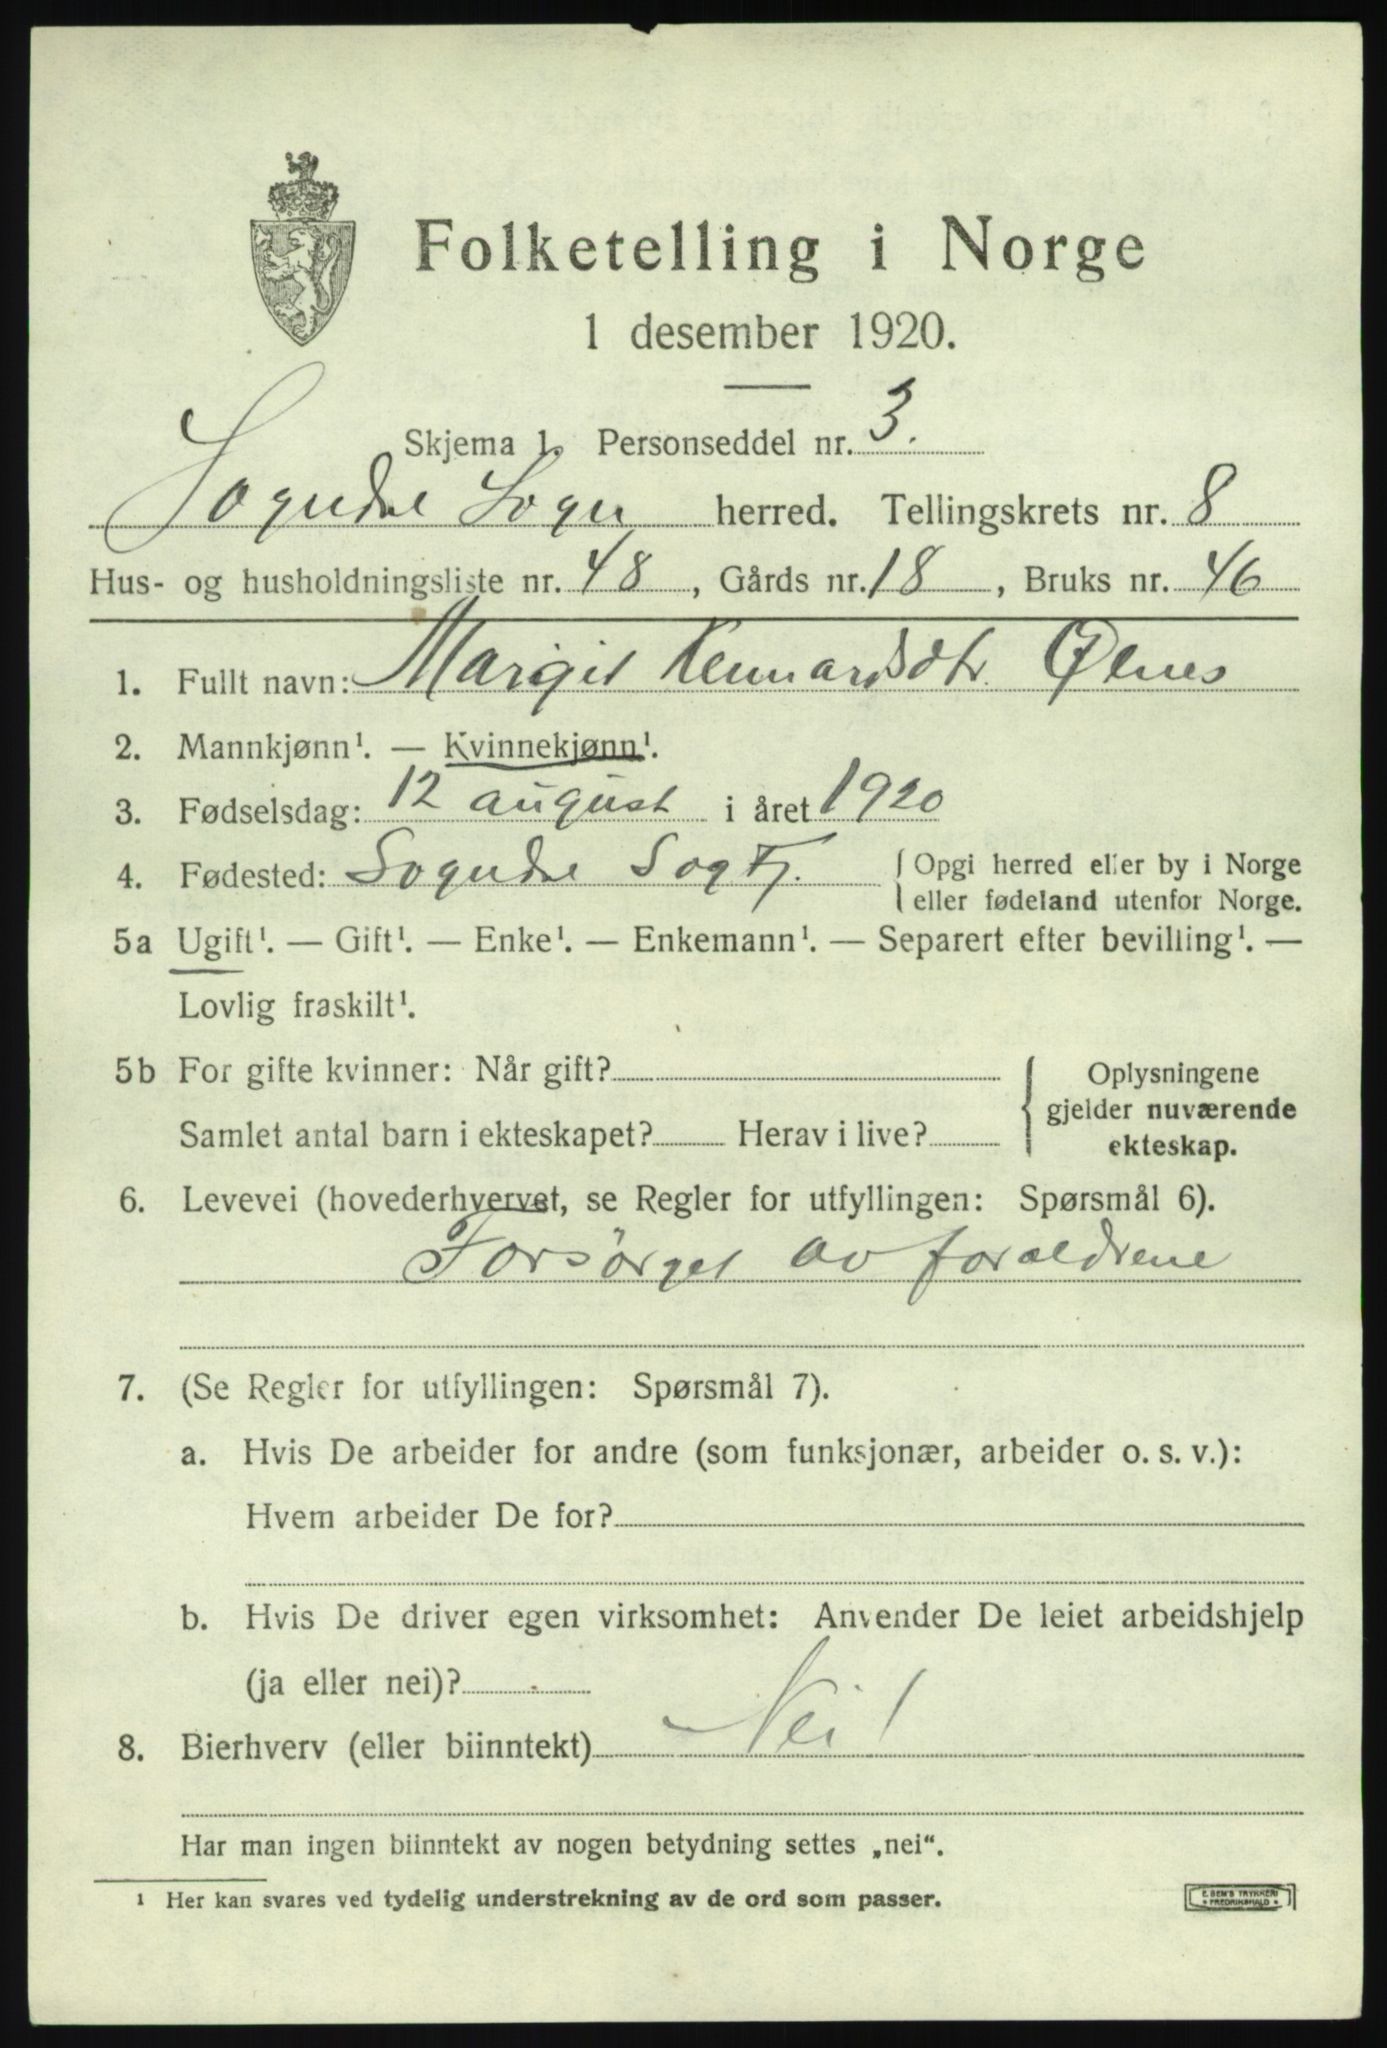 Folketelling i Norge
1 desember 1920.
Skjema 1. Personseddel nr. 3.
Sogndal Sogn herred. Tellingskrets nr. 8
Hus- og husholdningsliste nr. 48, Gårds nr. 18, Bruks nr. 46
1. Fullt navn: Margit Øenes
2. Mannkjønn¹. — Kvinnekjønn¹.
3. Fødselsdag: 12 august i året 1920
4. Fødested: Sogndal Sogn Fj. { Opgi herred eller by i Norge
eller fødeland utenfor Norge.
5a Ugift¹. — Gift¹. — Enke¹. — Enkemann¹. — Separert efter bevilling¹. —
Lovlig fraskilt¹.
5b For gifte kvinner: Når gift? { Oplysningene
gjelder nuværende
Samlet antal barn i ekteskapet? Herav i live? ekteskap.
6. Levevei (hovederhvervet, se Regler for utfyllingen: Spørsmål 6).
Forsørget av foraldrene
7. (Se Regler for utfyllingen: Spørsmål 7).
a. Hvis De arbeider for andre (som funksjonær, arbeider o. s. v.):
Hvem arbeider De for?
b. Hvis De driver egen virksomhet: Anvender De leiet arbeidshjelp
(ja eller nei)?
8. Bierhverv (eller biinntekt) Nei!
Har man ingen biinntekt av nogen betydning settes „nei“.
¹ Her kan svares ved tydelig understrekning av de ord som passer.
E. SEM'S TRYKKERI
FREDRIKSHALD